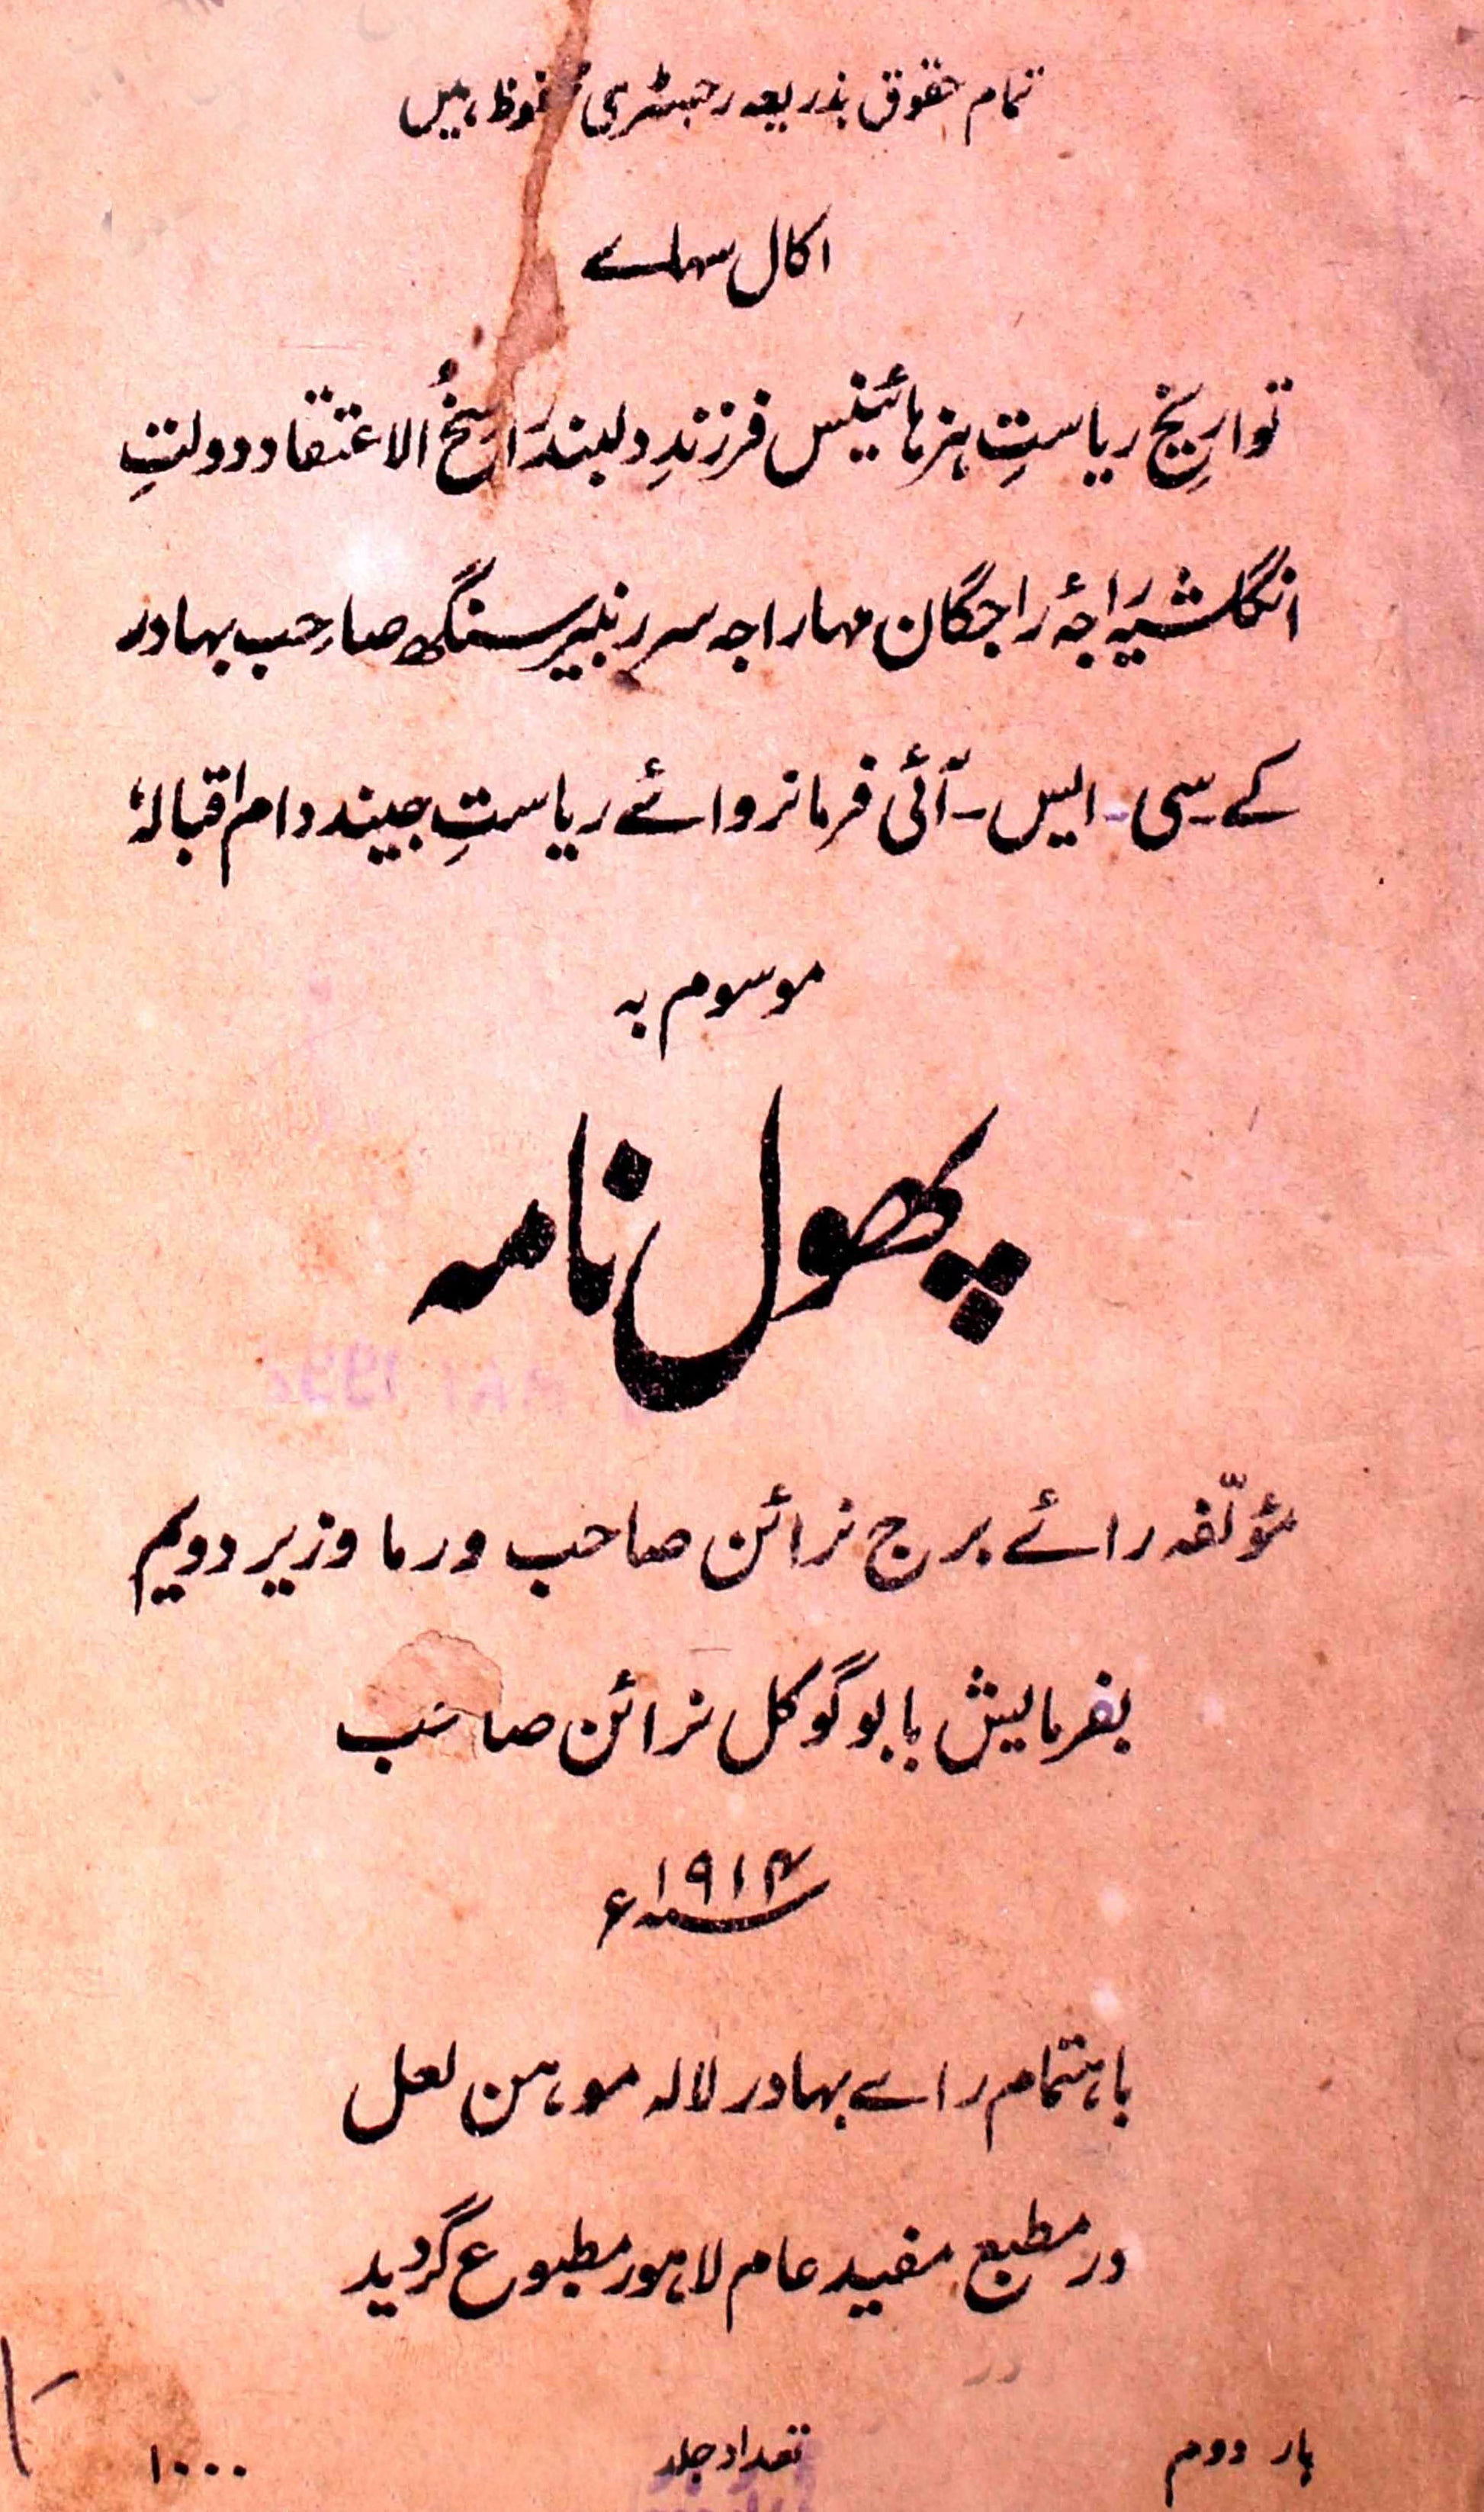 تمام حقوق بذریعہ رجسٹری محفوظ ہیں
اکال سہاے
تواریخ ریاستِ ہزہائینس فرزندِ دلبند راسخُ الاعتقاد دولتِ
انگلشیہ راجۂ راجگان مہاراجہ سر رنبیر سنگھ صاحب بہادر
کے ۔ سی ۔ ایس ۔ آئی فرمانروائے ریاستِ جیند دام اقبالہٗ
موسوم بہ
پھول نامہ
مؤلّفہ رائے برج نرائن صاحب ورما وزیر دویم
بفرمایش بابو گوکل نرائن صاحب
سنہ ۱۹۱۴ء
باہتمام راے بہادر لالہ موہن لعل
در مطبع مفید عام لاہور مطبوع گردید
بار دوم تعداد جلد ۱۰۰۰